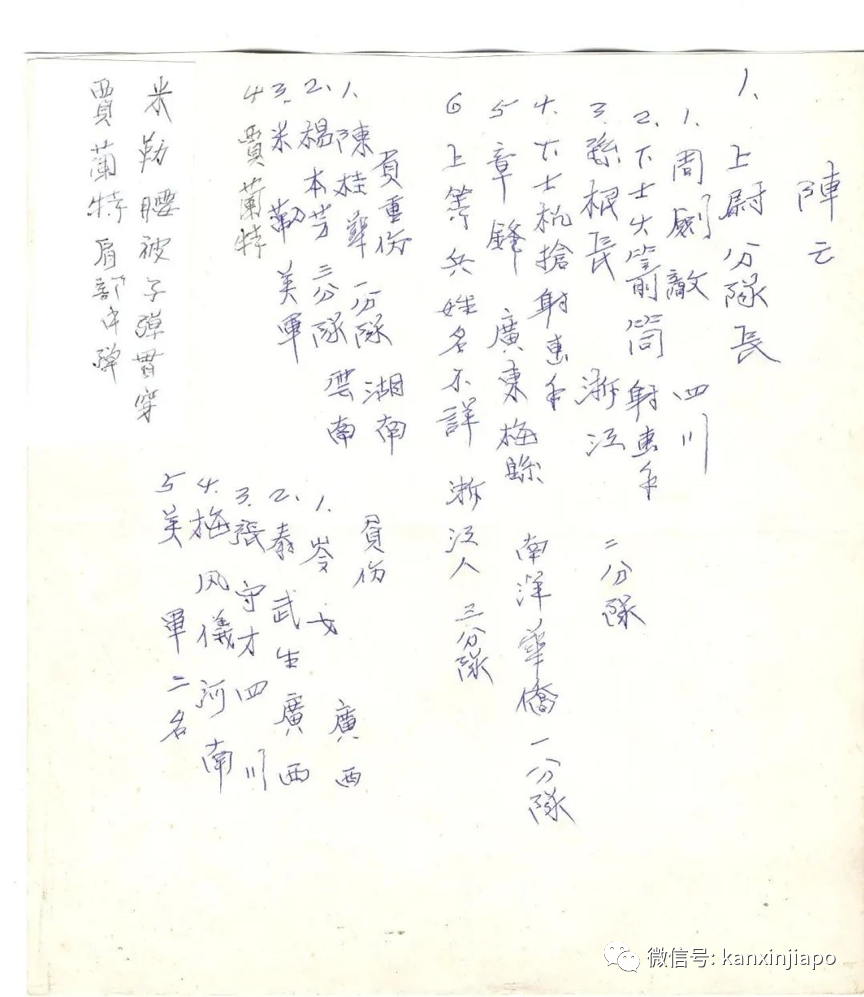 陣亡
1、上尉分隊長
1.周劍敵 四川
2.下士火箭筒射擊手
3.孫根長 浙江 二分隊
4.下士机搶射擊手
5 章鋒 廣東梅縣 南洋華僑 一分隊
6 上等兵姓名不詳 浙江人 三分隊
負重伤
1.陳桂華 一分隊 湖南
2.楊本芳 三分隊 雲南
3.米勒 美軍
4 賈蘭特
米勒腰被子彈貫穿
賈蘭特肩部中彈
負伤
1.岑 廣西
2.秦武生 廣西
3.張守才 四川
4.梅风儀 河南
5 美軍二名
微信号: kanxinjiapo